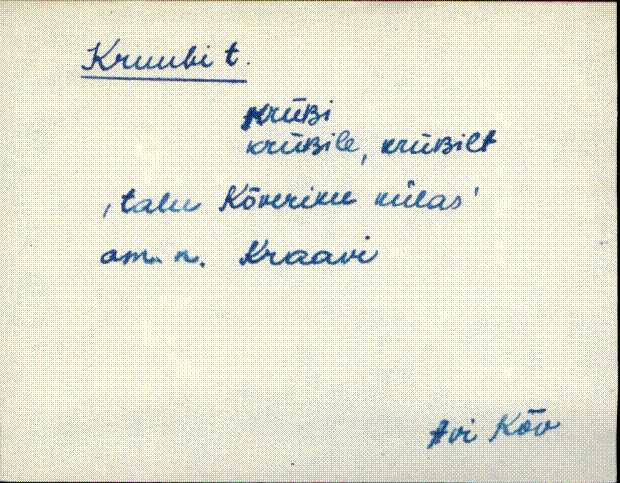 Kruubi t.
krūʙi
krūʙile, krūʙilt
‚talu Kõveriku külas'
om. n. Kraavi
Avi Kõv